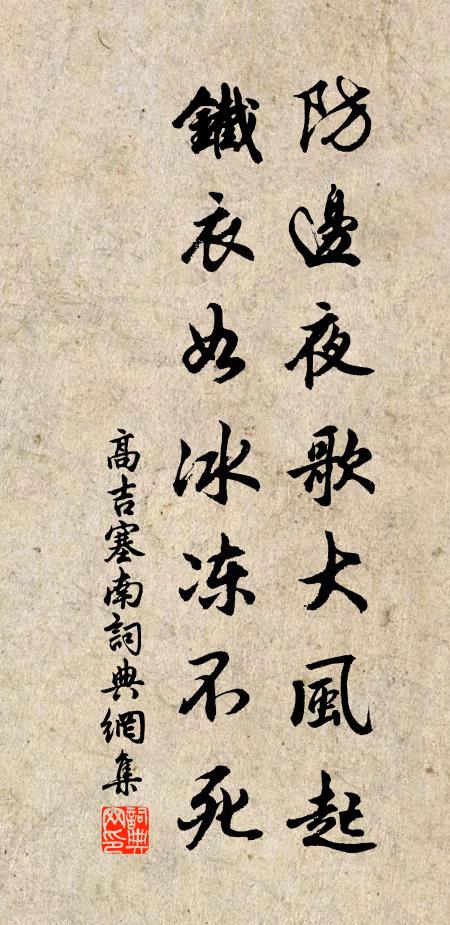 防邊夜歌大風起
鐵衣如冰冻不死
高吉塞南詞典網集
詞典网印